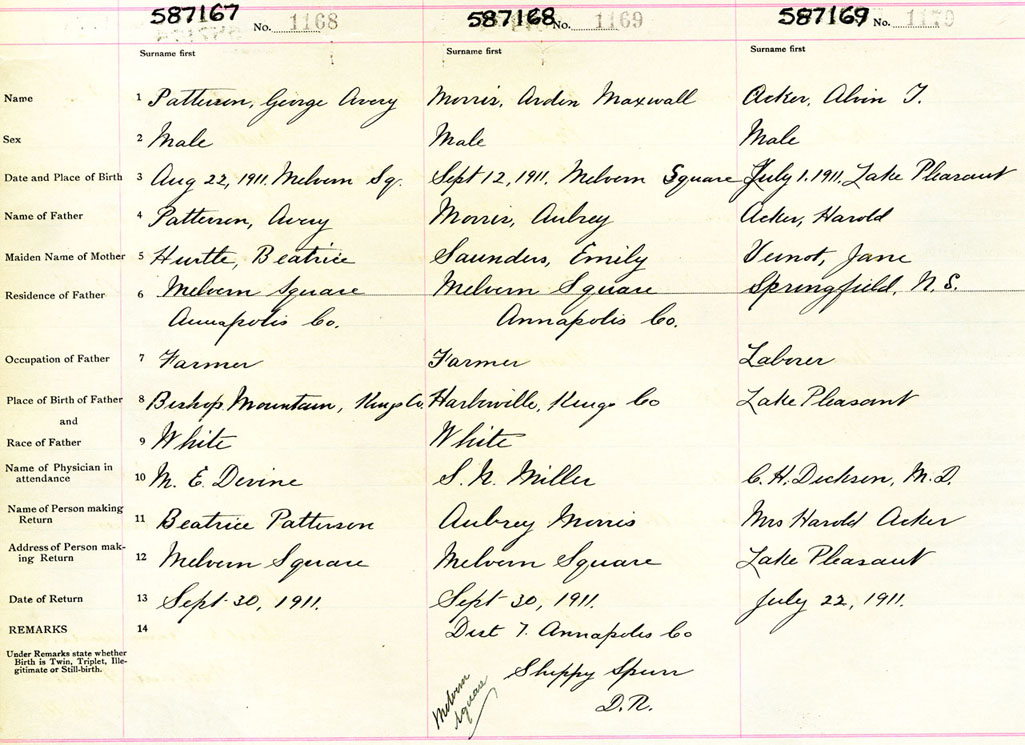 587167 No. 1168 587168 No. 1169 587169 No. 1170
Surname first Surname first Surname first
Name 1 Patterson, George Avery Morris, Arden Maxwall Acker, Alvin T.
Sex 2 Male Male Male
Date and Place of Birth 3 Aug 22, 1911. Melvern Sq. Sept 12, 1911. Melvern Square July 1. 1911. Lake Pleasant
Name of Father 4 Patterson, Avery Morris, Aubrey Acker, Harold
Maiden Name of Mother 5 Hurtle, Beatrice Saunders, Emily Veinot, Jane
Residence of Father 6 Melvern Square Melvern Square Springfield, N.S.
Annapolis Co. Annapolis Co.
Occupation of Father 7 Farmer Farmer Laborer
Place of Birth of Father 8 Bishop Mountain, Kings Co. Harborville, Kings Co Lake Pleasant
and
Race of Father 9 White White
Name of Physician in
attendance 10 M. E. Devine S. N. Miller C. H. Dickson, M.D.
Name of Person making
Return 11 Beatrice Patterson Aubrey Morris Mrs Harold Acker
Address of Person mak-
ing Return 12 Melvern Square Melvern Square Lake Pleasant
Date of Return 13 Sept 30, 1911. Sept 30, 1911. July 22, 1911.
REMARKS 14 Dist 7. Annapolis Co
Under Remarks state whether
Birth is Twin, Triplet, Ille-
gitimate or Still-birth.
Spurr
D.R.
Melvern
Square